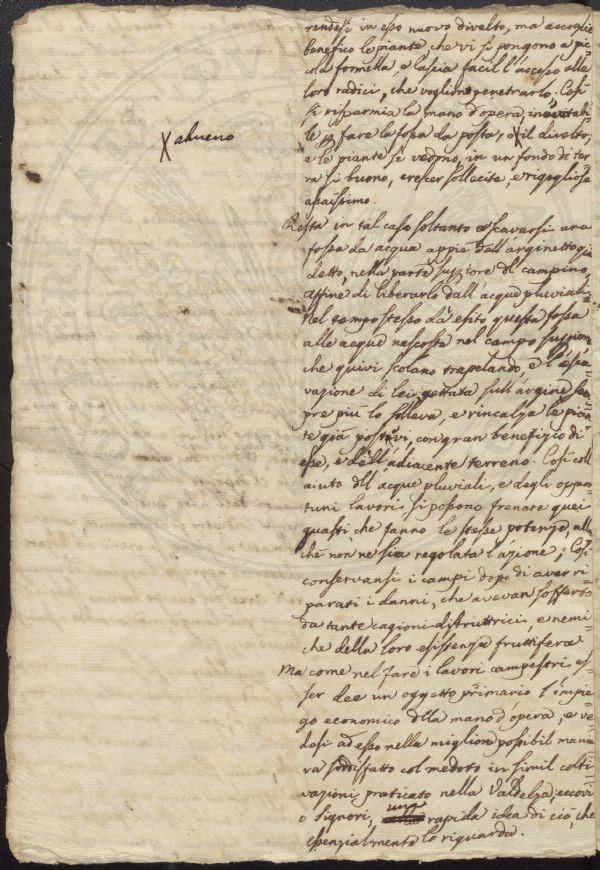 rendesi in esso nuovo divelto, ma accoglie
benefico le piante, che vi si pongono a pic-
cola formella, e lascia facil l'accesso alle
loro radici, che voglion penetrarlo. Così
si risparmia la mano d'opera, inevitabi-
le p fare la fossa da posta, o X il divelto,
X almeno
e le piante si vedono, in un fondo di ter-
ra sì buono, crescer sollecite, e rigogliose
assaissimo.
Resta in tal caso soltanto a scavarsi una
fossa da acqua appiè dell'arginetto gia
detto, nella parte supiore del campino,
affine di liberarlo dall'acque pluviali.
Nel tempo stesso dà esito questa fossa
alle acque nascoste nel campo supiore,
che quivi scolano trapelando, e l'esca-
vazione di lei gettata sull'argine sem-
pre più lo solleva, e rincalza le pian-
te già postevi, con gran benefizio di
esse, e dell'adiacente terreno. Così coll'
aiuto dll'acque pluviali, e degli oppor-
tuni lavori si possono frenare quei
guasti che fanno le stesse potenze, allor-
chè non ne sia regolata l'azione; Così
conservansi i campi dopo di aver ri-
parati i danni, che avevan sofferto
da tante cagioni distruttrici, e nemi-
che della loro esistenza fruttifera.
Ma come nel fare i lavori campestri, es-
ser dee un oggetto primario l'impie-
go economico dlla mano d'opera, e ve-
desi ad esso nella miglior possibil manie-
ra soddisfatto col metodo in simil colti-
vazioni praticato nella Valdelsa; eccovi
o Signori, una rapida idea di ciò, che
essenzialmente lo riguarda.